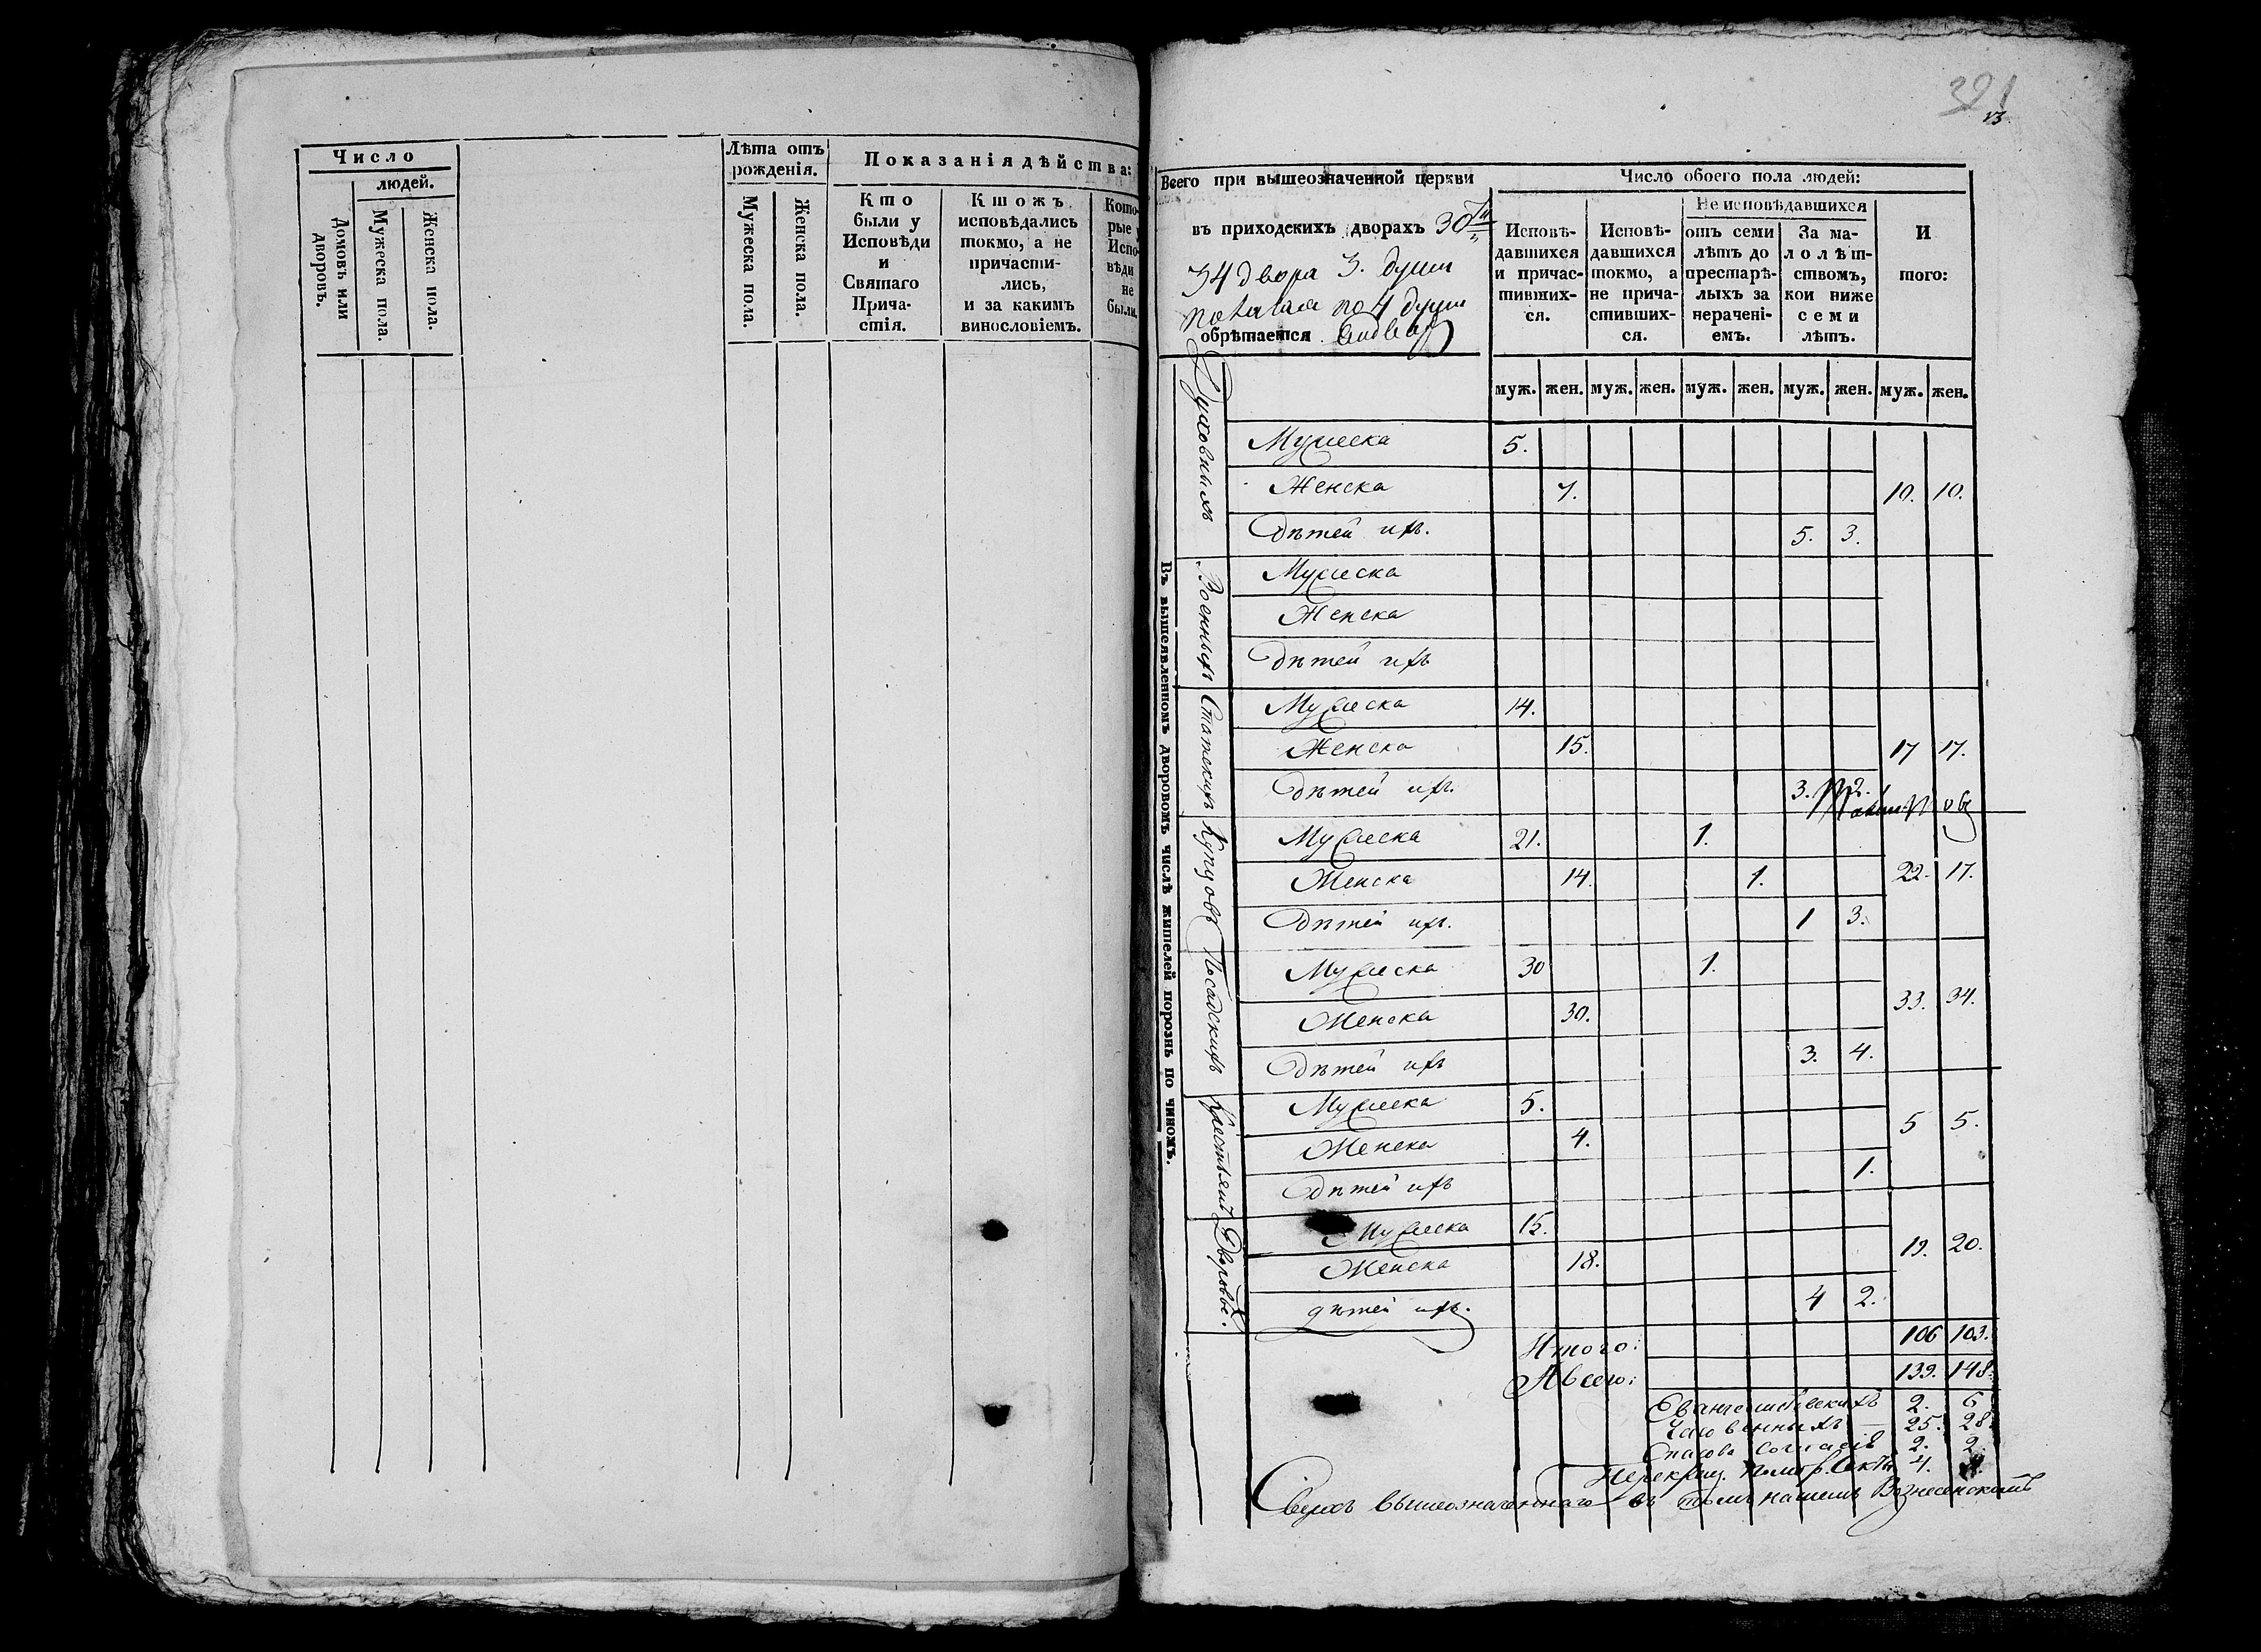 Число
людей.
Домовъ или дворовъ.
Мужеска пола.
Женска пола.
Лѣта отъ рожденія.
Мужеска пола.
Женска пола.
Показанія дѣйства:
Кто
были у
Исповѣди
и
Святаго
Прича-
стія.
Ктожъ
исповѣдались
токмо, а не
причасти-
лись,
и за какимъ
винословіемъ.
Кото-
рые у
Испо-
вѣди
не
были.
321
13
Всего при вышеозначенной церкви
въ приходскихъ дворахъ 30
34 двора 3. души
по 4 души
обрѣтается
Число обоего пола людей:
Исповѣ-
давшихся
и причас-
тивших-
ся.
Исповѣ-
давшихся
токмо, а
не прича-
стивших-
ся.
Не исповѣдавшихся
отъ семи
лѣтъ до
престарѣ-
лыхъ за
нерачені-
емъ.
За ма-
лолѣт-
ствомъ,
кои ниже
семи
лѣтъ.
И
того:
муж. жен. муж. жен. муж. жен. муж. жен. муж. жен.
Въ вышеявленномъ дворовомъ числѣ жителей порознь по чиномъ.
Духовныхъ
Мужеска 5.
Женска 7. 10. 10.
Дѣтей ихъ. 5. 3.
Военныхъ
Мужеска
Женска
Дѣтей ихъ
Статскихъ
Мужеска 14.
Женска 15. 17 17.
Дѣтей ихъ. 3. 2.
Купцовъ
Мужеска 21. 1.
Женска 14. 1. 22. 17.
Дѣтей ихъ. 1 3.
Посадскихъ
Мужеска 30 1.
Женска 30. 33. 34.
Дѣтей ихъ 3. 4.
Крестьянъ
Мужеска 5.
Женска 4. 5 5.
Дѣтей ихъ 1.
Дворовые.
Мужеска 15.
Женска 18. 19. 20.
дѣтей ихъ. 4 2.
Итого: 106 103.
А всего: 139. 148.
2. 6
Часовенныхъ 25. 28.
Спасова Согласія 2. 2.
4.
Сверхъ вышеозначеннаго въ томъ нашемъ Вознесенскомъ